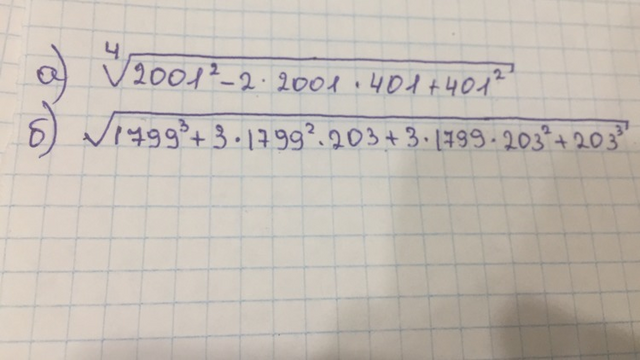 а) ⁴√2001² - 2 · 2001 · 401 + 401²
б) √1799³ + 3 · 1799² · 203 + 3 · 1799 · 203² + 203³